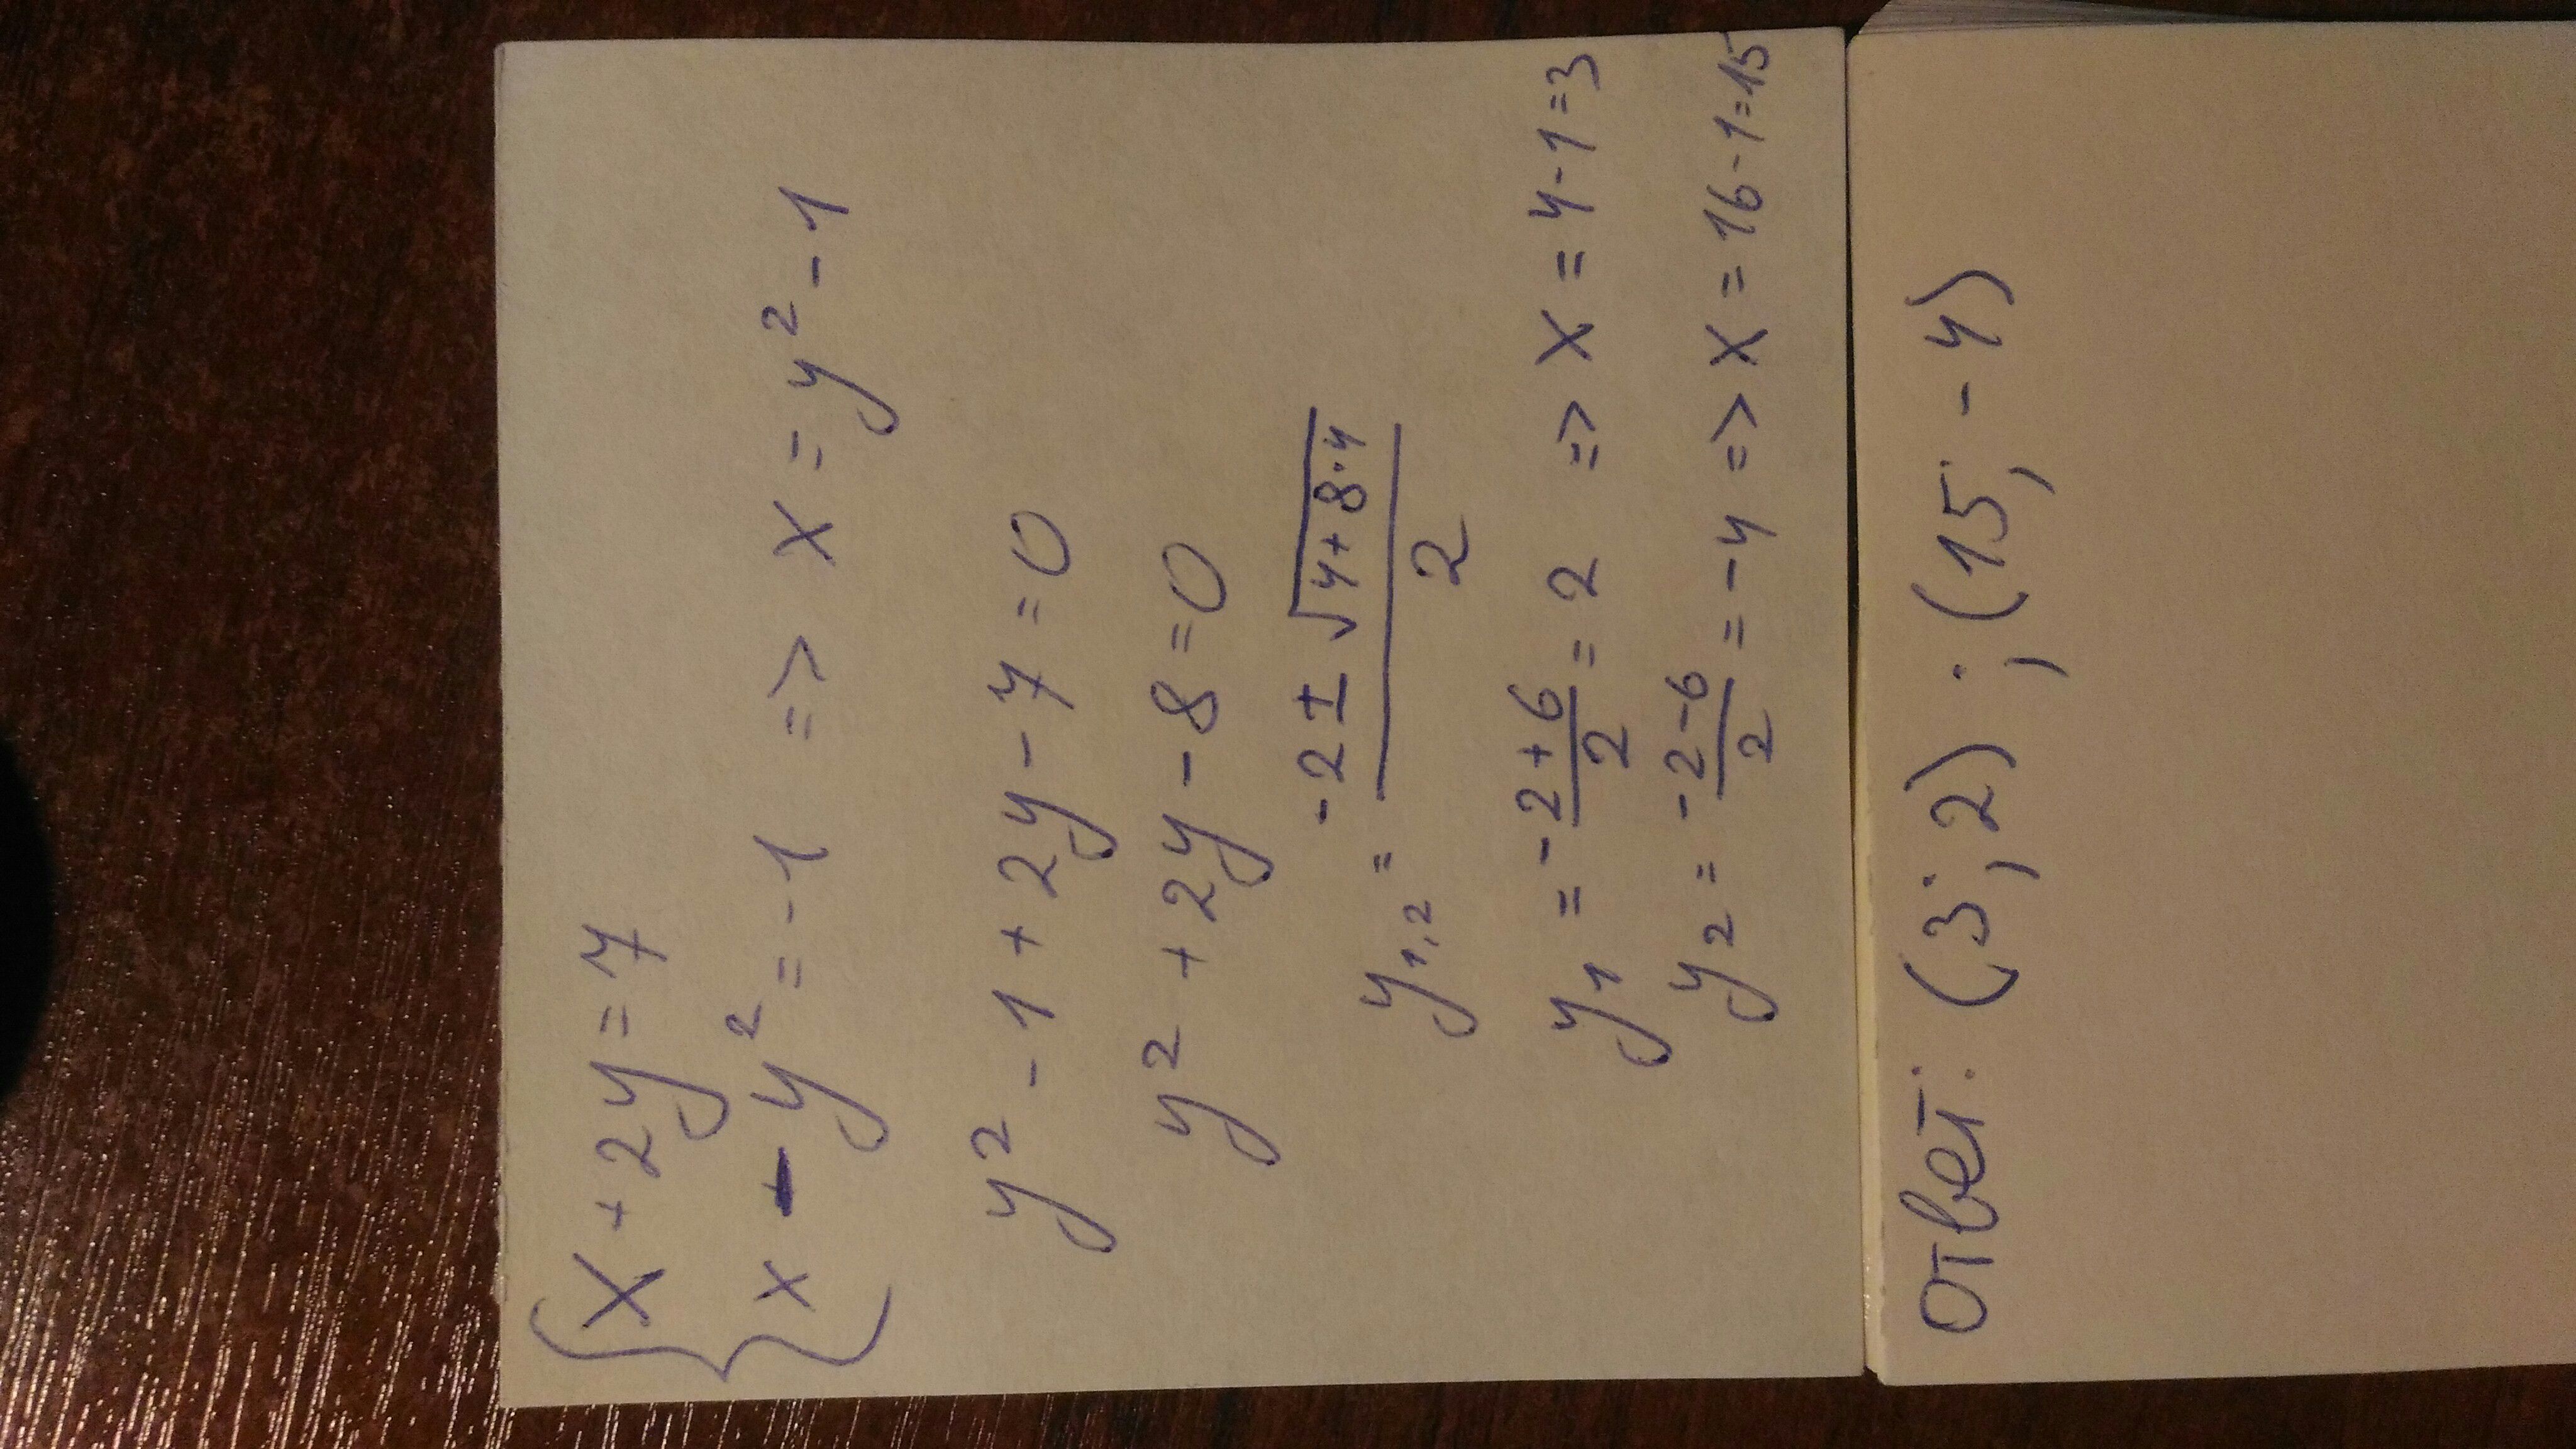 x + 2y = 7
x - y² = -1 => x = y² - 1
y² - 1 + 2y - 7 = 0
y² + 2y - 8 = 0
y₁,₂ = (-2 ± √(4 + 8·4)) / 2
y₁ = (-2 + 6) / 2 = 2 => x = 4 - 1 = 3
y₂ = (-2 - 6) / 2 = -4 => x = 16 - 1 = 15
Ответ: (3; 2) ; (15; -4)